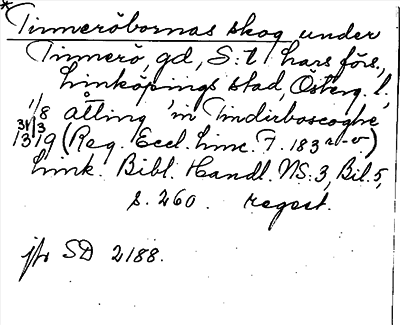 *Tinneröbornas skog under
Tinnerö, gd, S:t Lars förs.,
Linköpings stad, Österg. l.
1/8 åtting 'in Tindirboscoghe'
31/3 1319 (Reg. Eccl. Linc. F. 183 r-v)
Link. Bibl. Handl. NS: 3, Bil. 5,
s. 260. regest.
jfr SD 2188.